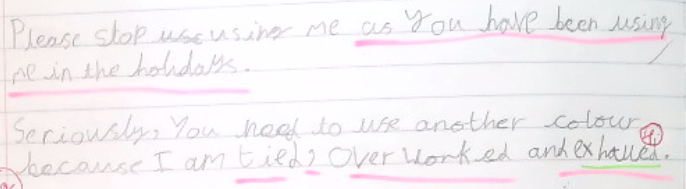 Please stop use using me as you have been using
me in the holidays.
Seriously, you need to use another colour
because I am tied, over worked and exhaued.